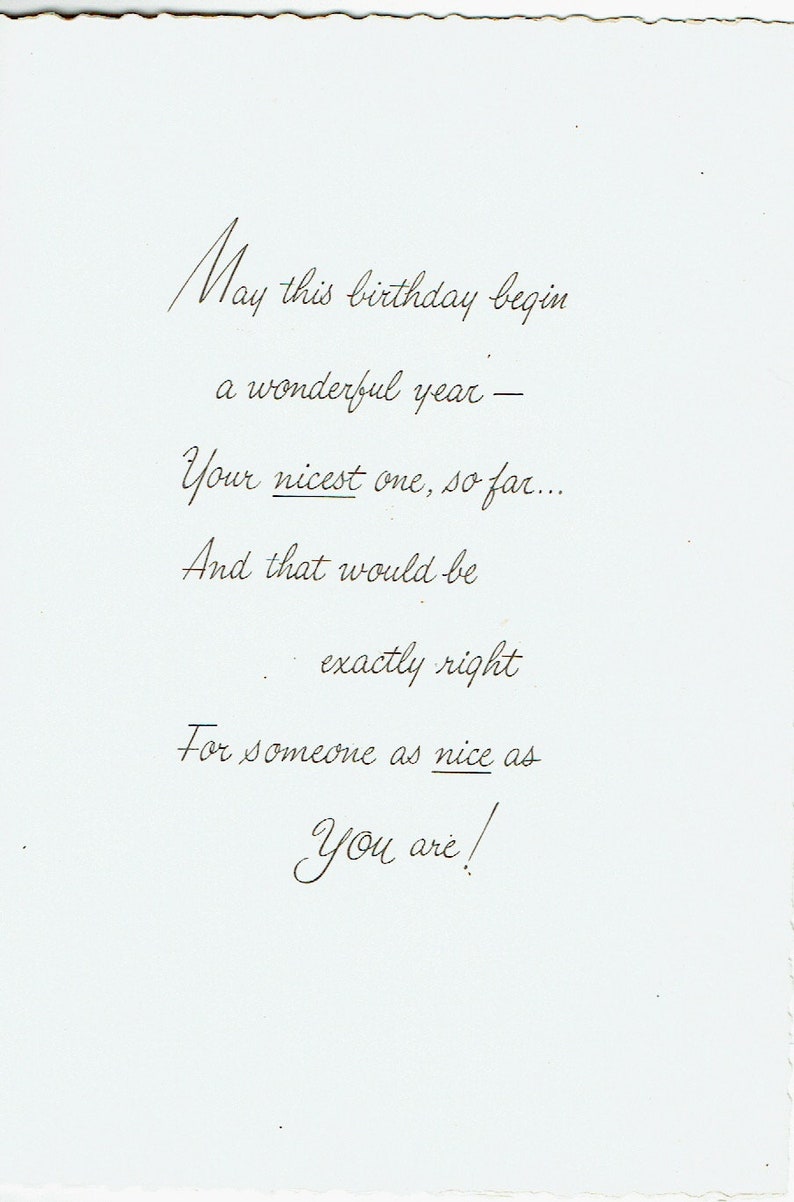 May this birthday begin
a wonderful year —
Your nicest one, so far...
And that would be
exactly right
For someone as nice as
YOU are!